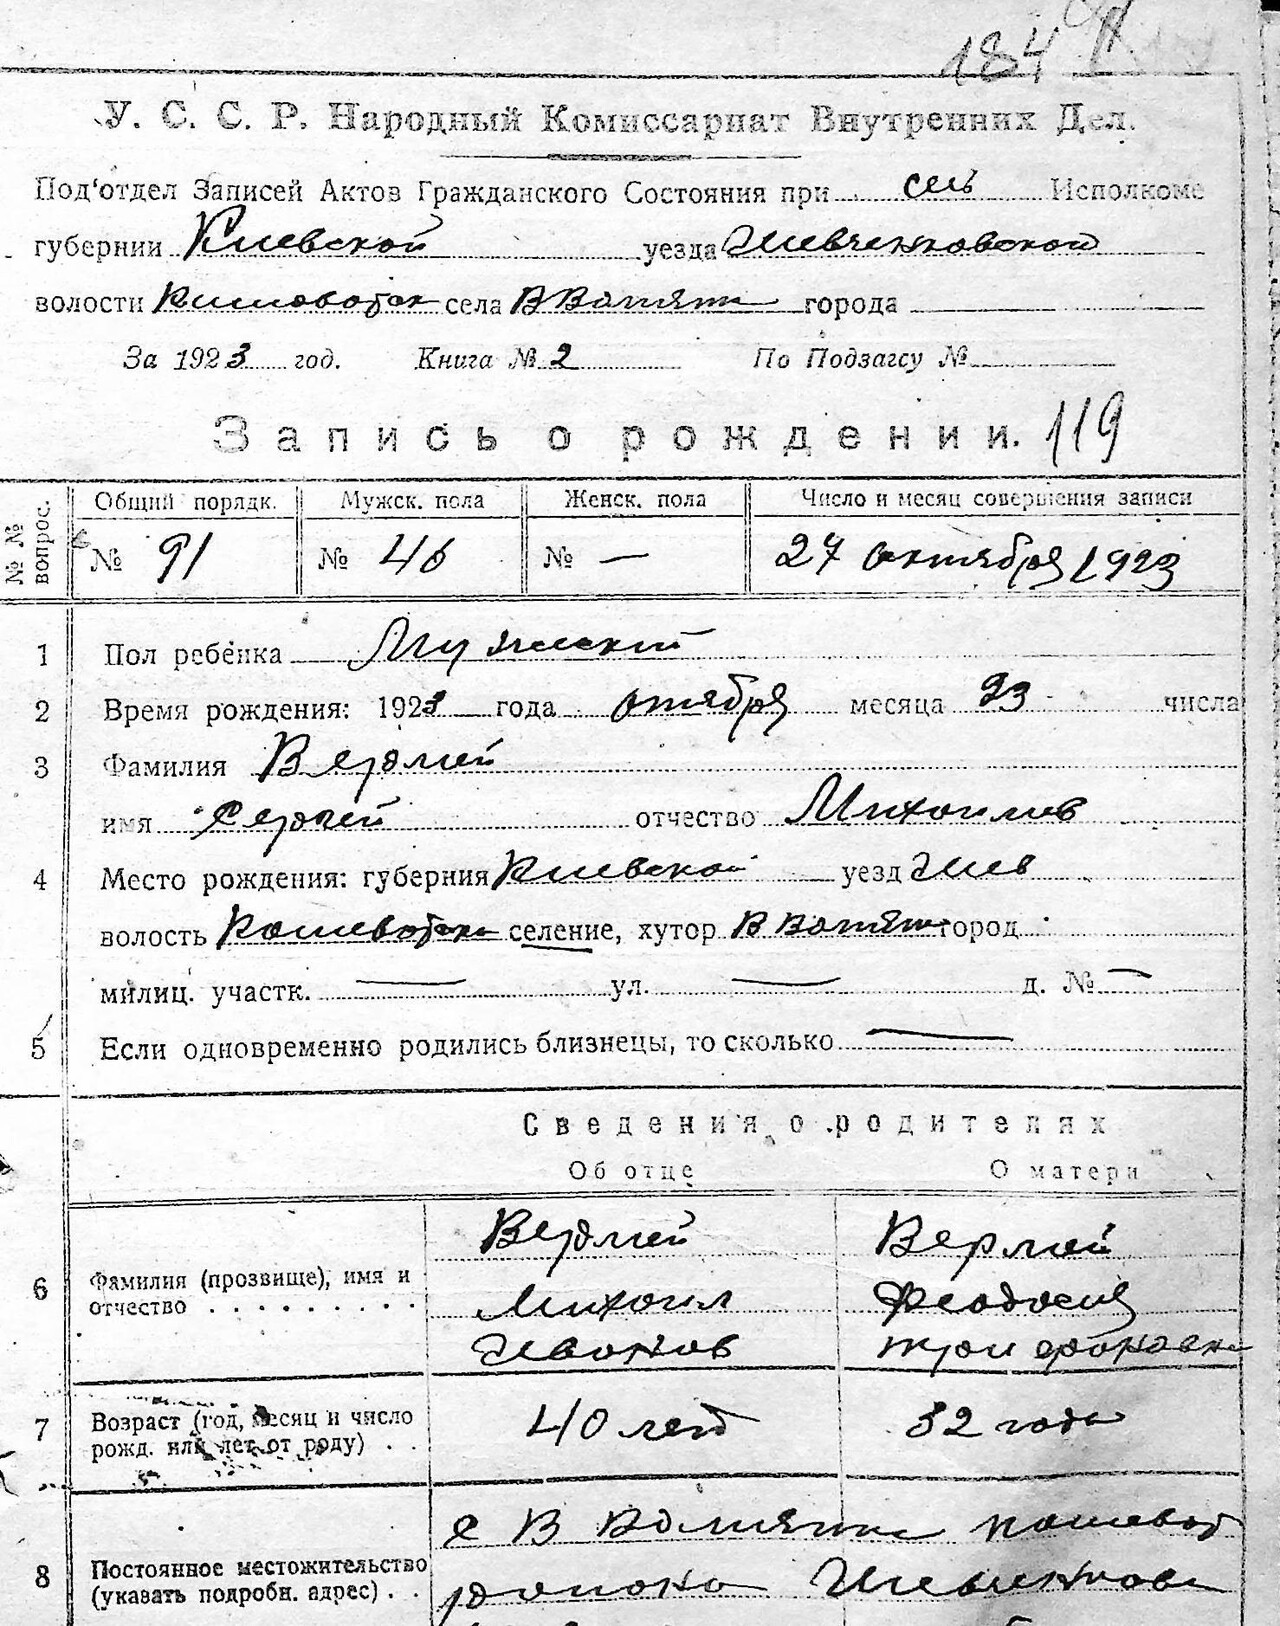 184
У. С. С. Р. Народный Комиссариат Внутренних Дел.
Под'отдел Записей Актов Гражданского Состояния при сель Исполкоме
губернии Киевской уезда Шевченковской
волости села В Вотяти города
За 1923 год. Книга № 2 По Подзагсу №
Запись о рождении. 119
№ № вопрос. Общий порядк. Мужск. пола Женск. пола Число и месяц совершения записи
№ 91 № 46 № — 27 октября 1923
1 Пол ребёнка Мужеский
2 Время рождения: 1923 года октября месяца 23 числа
3 Фамилия
имя Сергей отчество Михаилов
4 Место рождения: губерния Киевской уезд Шев
волость селение, хутор город
милиц. участк. — ул. — д. № —
5 Если одновременно родились близнецы, то сколько —
Сведения о родителях
Об отце О матери
6 Фамилия (прозвище), имя и отчество
Михаил Феодосия
Иванов
7 Возраст (год, месяц и число рожд. или лет от роду) 40 лет 32 года
8 Постоянное местожительство (указать подробн. адрес)
с В
района Шевченков